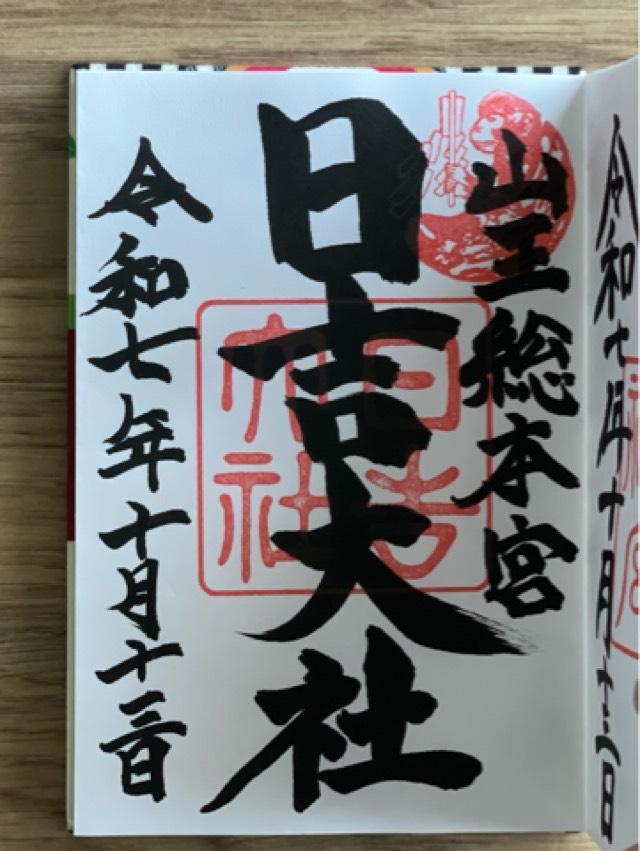 令和七年十月十 日
山王総本宮
日吉大社
日吉
大社
令和七年十月十三日